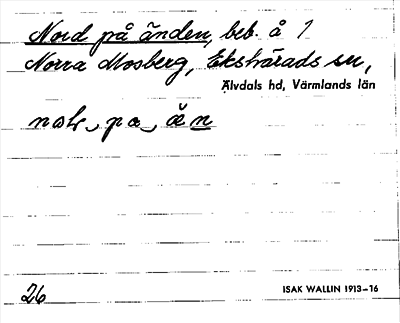 Nord på änden, beb. å 1
Norra Mosberg, Ekshärads sn,
Älvdals hd, Värmlands län
26
ISAK WALLIN 1913–16